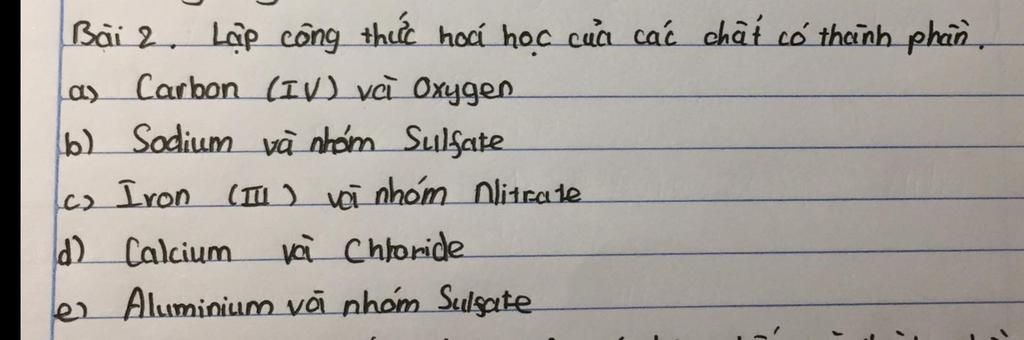 Bài 2. Lập công thức hoá học của các chất có thành phần.
a) Carbon (IV) và Oxygen
b) Sodium và nhóm Sulfate
c) Iron (III) và nhóm Nitrate
d) Calcium và Chloride
e) Aluminium và nhóm Sulfate